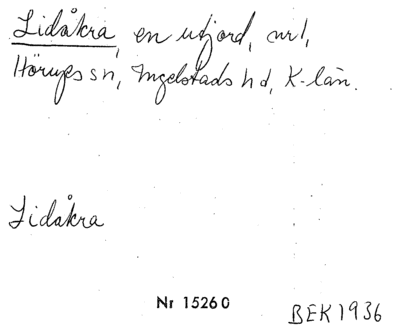 Lidåkra, en utjord, nr 1,
Hörups sn, Ingelstads hd, K-län.
Lidåkra
Nr 15260
BEK 1936